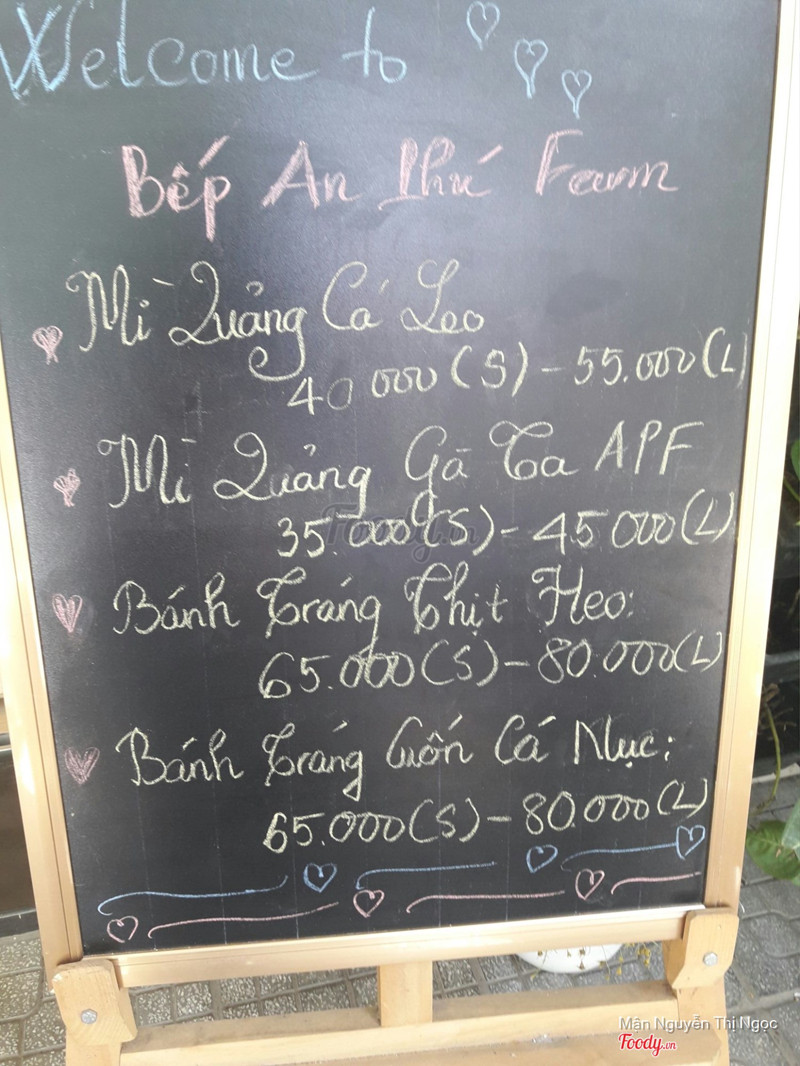 Welcome to
Bếp An Phú Farm
Mì Quảng Cá Leo
40 000 (S) - 55.000 (L)
Mì Quảng Gà Ta APF
35.000 (S) - 45 000 (L)
Bánh Tráng Thịt Heo:
65.000 (S) - 80.000 (L)
Bánh Tráng Cuốn Cá Nục:
65.000 (S) - 80.000 (L)
Foody.vn
Mận Nguyễn Thị Ngọc
Foody.vn